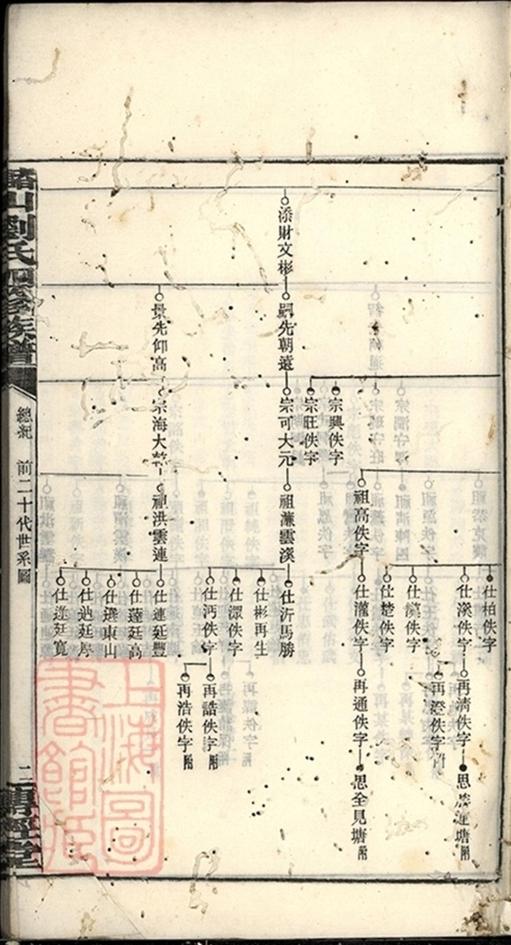 山劉氏四修族譜
總紀
前二十代世系圖
二
添財文彬
嗣先朝遠
景先仰高
宗興佚字
宗旺佚字
宗可大元
宗海大
祖高佚字
祖濂雲溪
祖洪雲連
仕柏佚字
仕漢佚字
仕楚佚字
仕瀧佚字
仕沂馬勝
仕彬再生
仕潔佚字
仕沔佚字
仕連廷豐
仕廷高
仕選東山
仕廷厚
仕進廷寬
再清佚字
再澄佚字附
再通佚字
再誥佚字附
再浩佚字附
思塘附
思全見塘附
上海圖書館藏